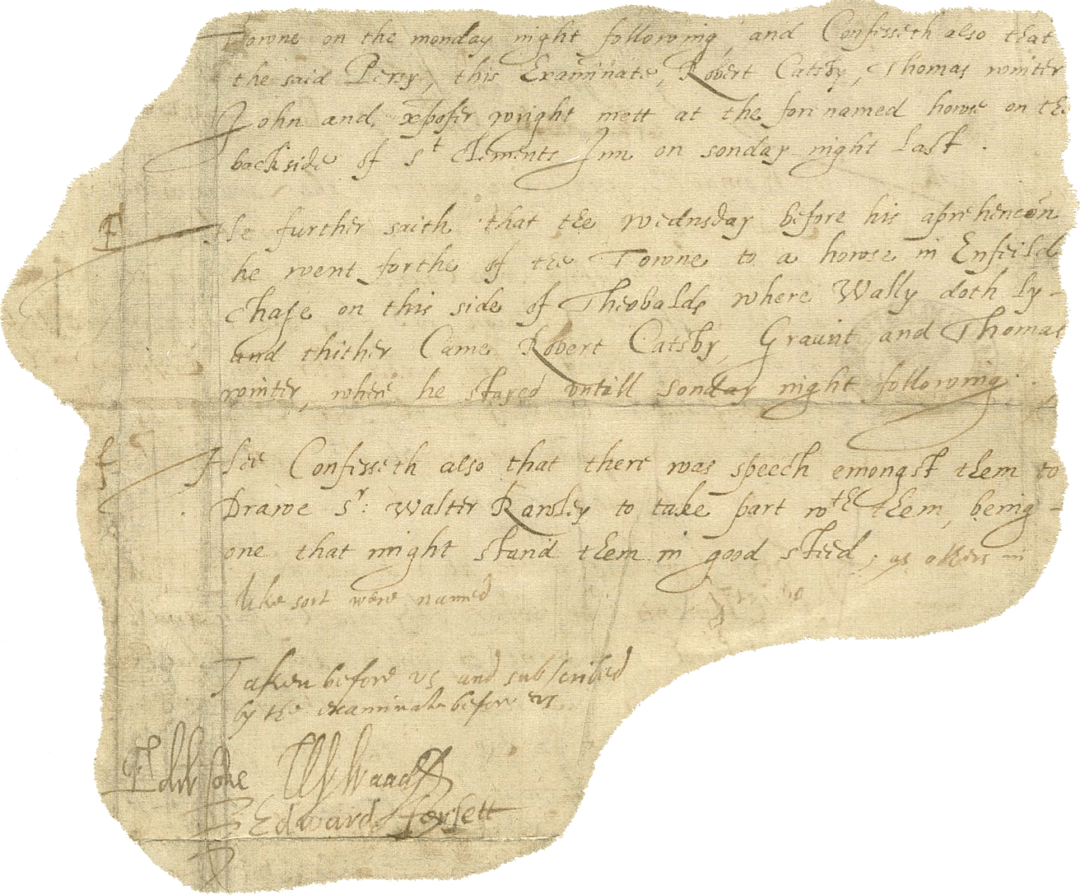 Towne on the monday night following, and Confesseth also that
the said Percy, this Examinate, Robert Catsby, Thomas winter
John and xpofer wright mett at the forenamed howse on the
backside of St Clements Inn on sonday night last.
He further saith that the wednsday before his aprehencon
he went forthe of the Towne to a howse in Enfeild
chase on this side of Theobalds where Wally doth ly
and thither Came Robert Catsby, Graunt and Thomas
winter, where he stayed untill sonday night following.
f
Hee Confesseth also that there was speech emongst them to
Drawe Sr: Walter Rawley to take part wth them, being
one that might stand them in good steed, as others in
like sort were named
Taken before us and subscribed
by the examinate before us
Edw Coke W Waad
Edward fforsett